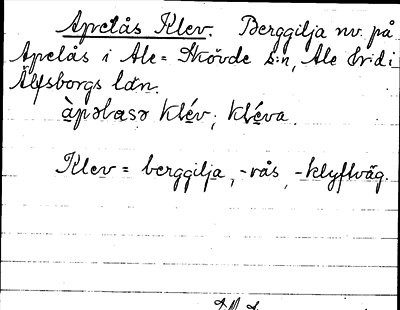 Apelås Klev. Berggilja nv. på
Apelås i Ale=Skövde s:n, Ale h:d i
Älfsborgs län.
àpəlasə klév; kléva.
Klev = berggilja, -rås, -klyftväg.